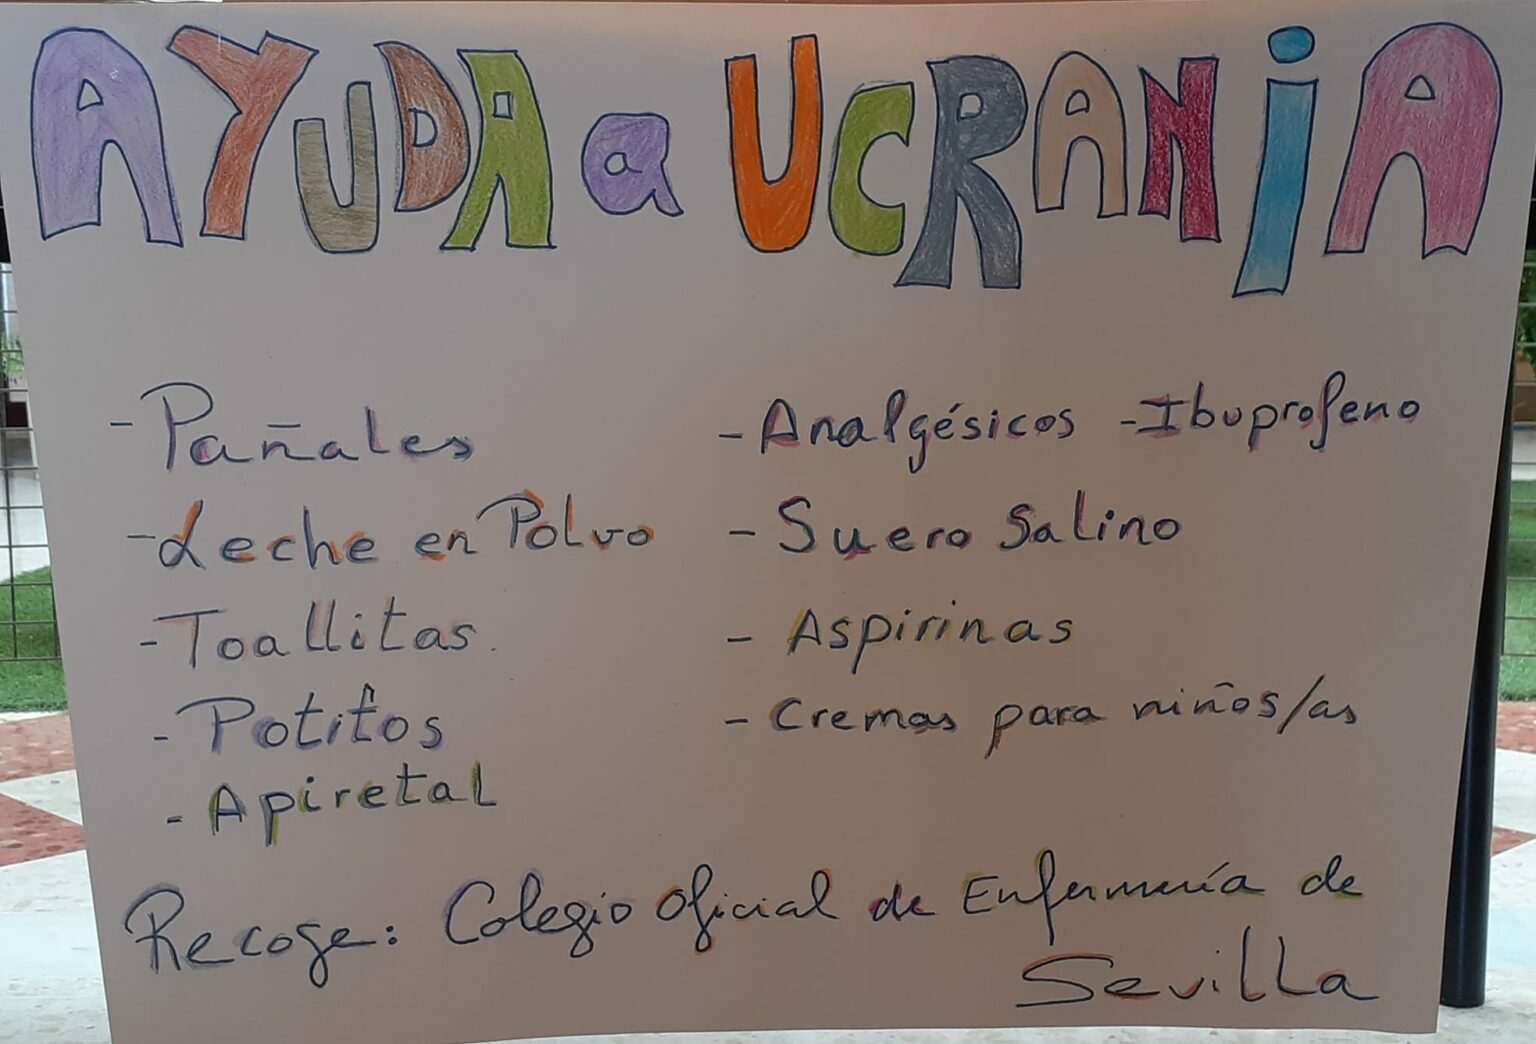 AYUDA a UCRANiA
- Pañales
- Leche en Polvo
- Toallitas.
- Potitos
- Apiretal
- Analgésicos - Ibuprofeno
- Suero Salino
- Aspirinas
- Cremas para niños/as
Recoge: Colegio Oficial de Enfermería de
Sevilla